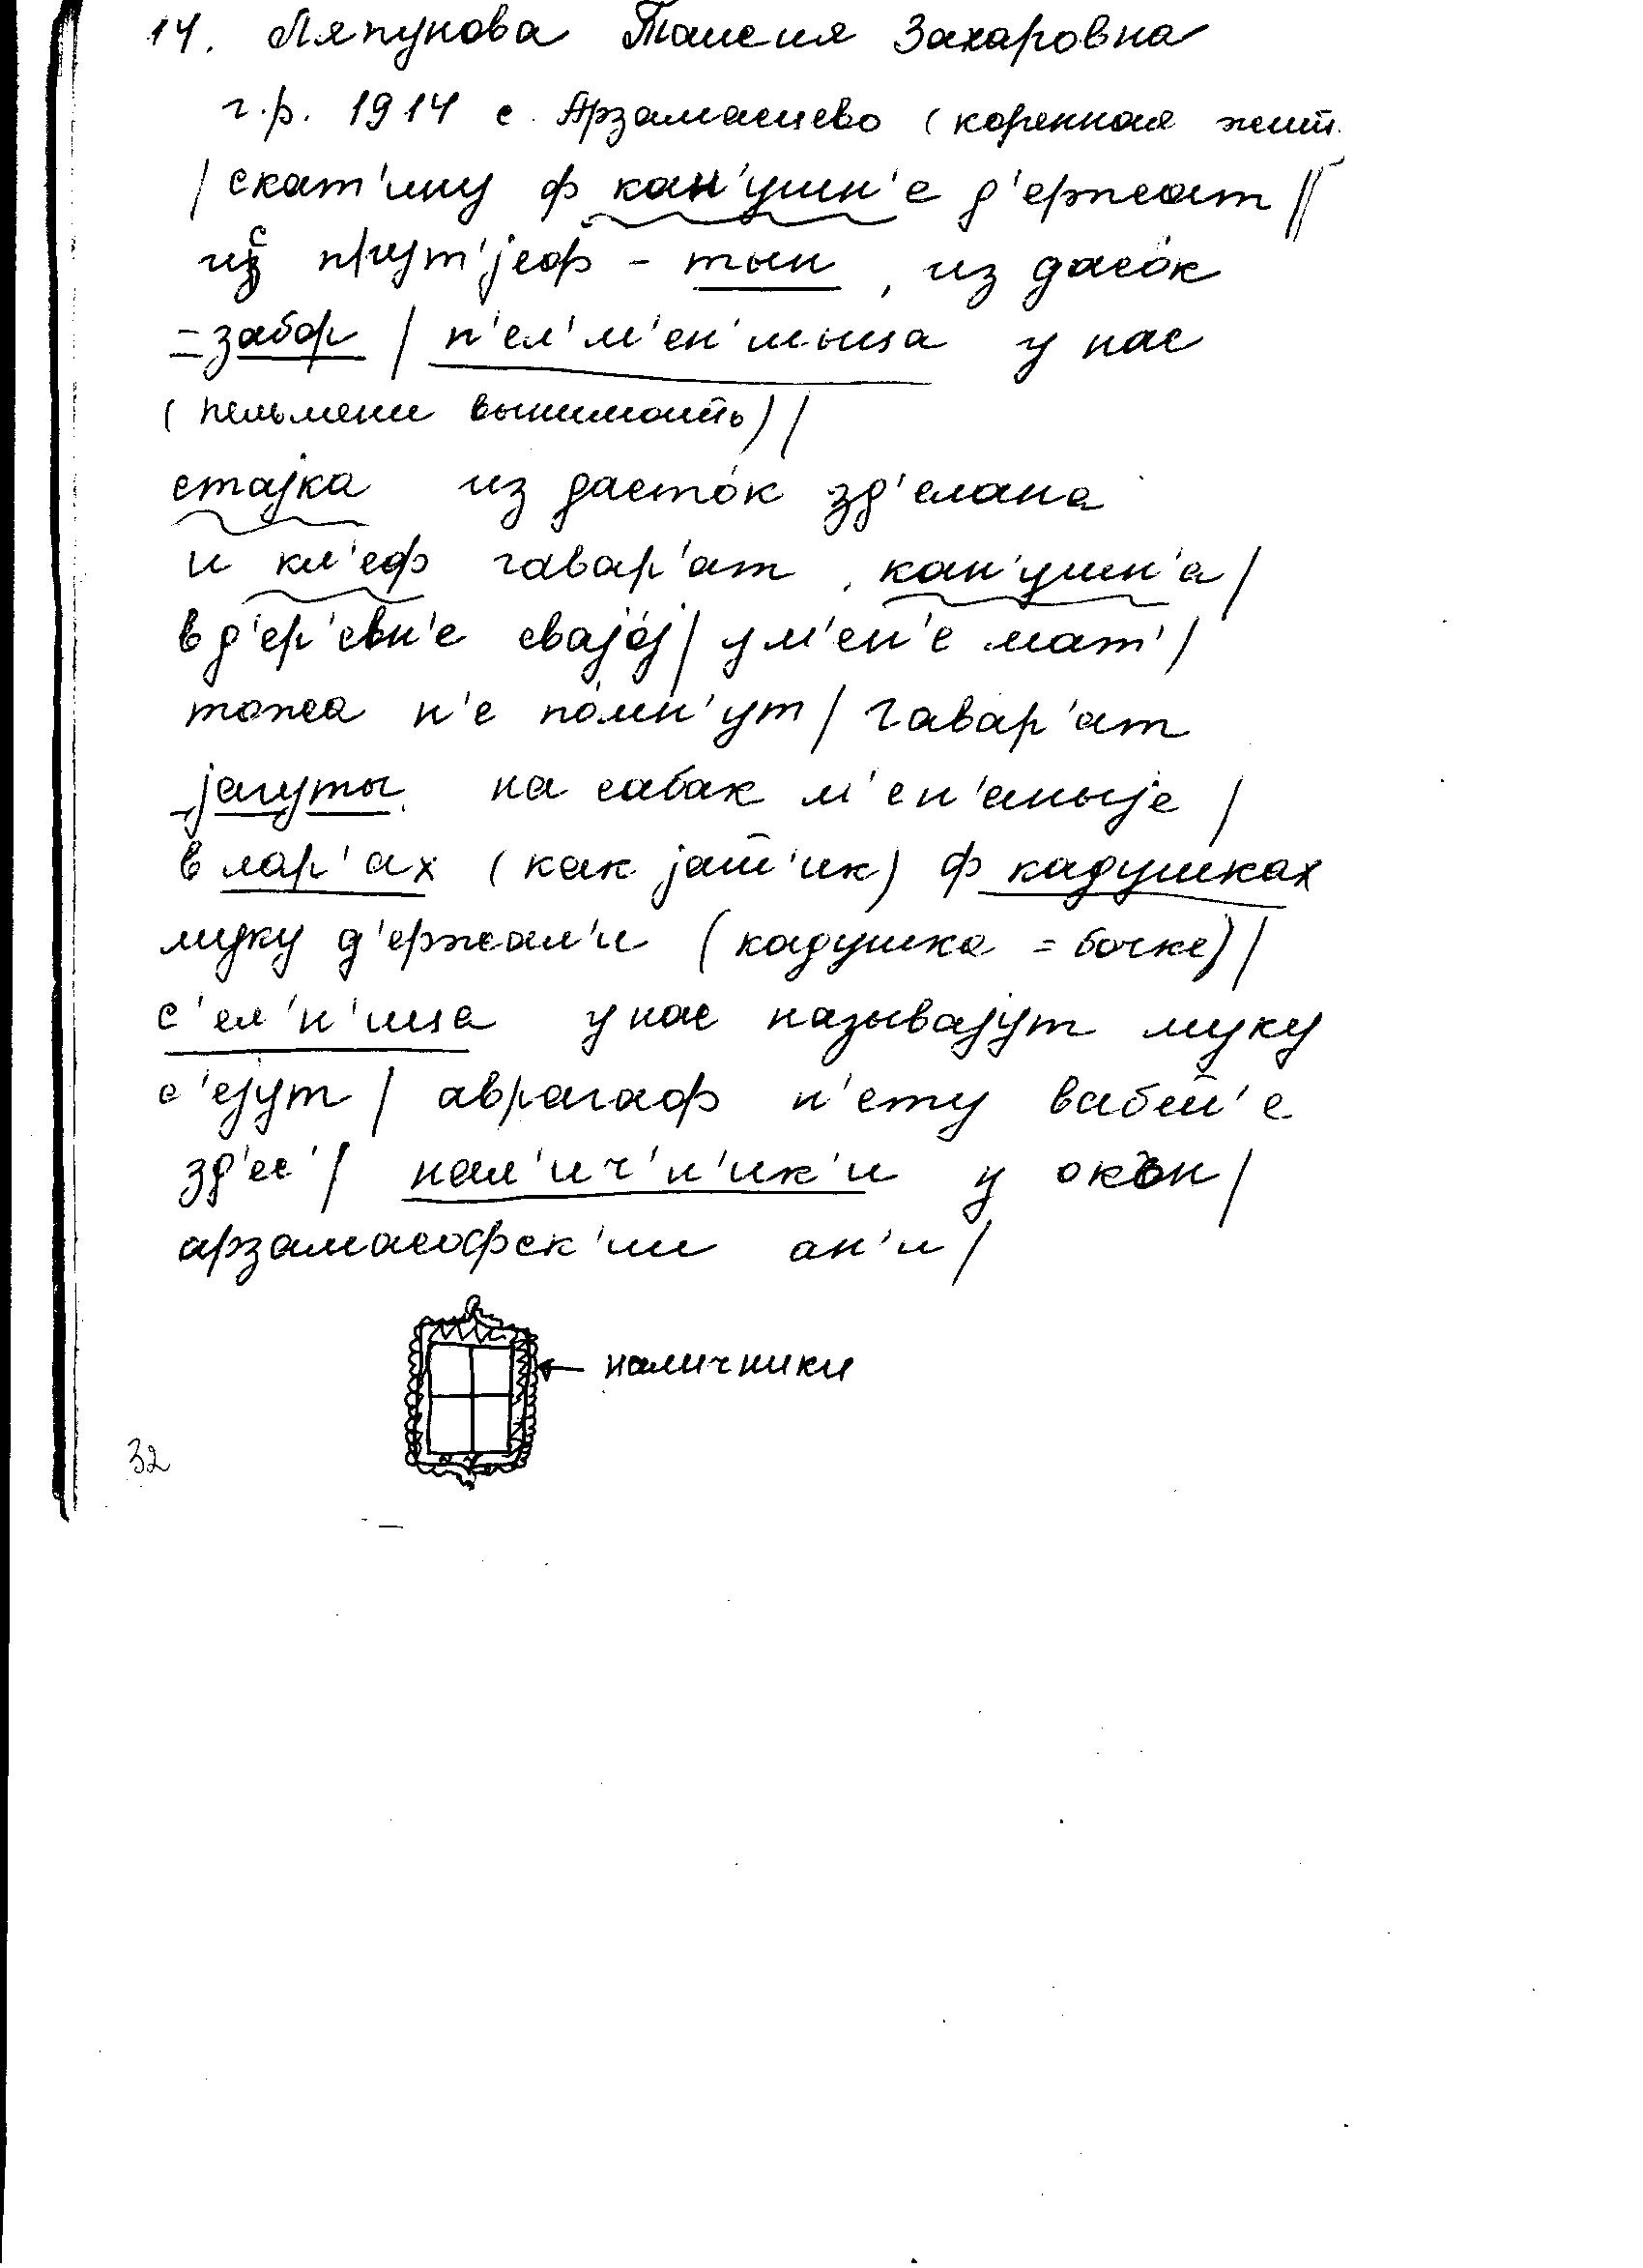 14. Ляпунова Таисия Захаровна
г.р. 1914 с. Арзамасцево (коренная жит.
/ скат'ину ф кан'ушн'е д'ержат //
ис прут'јеф - тын, из дасо́к
= забор / п'ел'м'ен'ныца у нас
(пельмени вынимать) /
стајка из дасто́к зд'елана
и кл'еф гавар'ат, кан'ушн'а /
в д'ер'евн'е свајо́ј / у м'ен'е мат' /
тожа н'е по́мн'ут / гавар'ат
јагуты на сабак м'ен'аныје /
в лар'ах (как јаш̅'ик) ф кадушках
муку д'ержал'и (кадушка = бочке) /
с'ел'н'ица у нас називајут муку
с'ејут / аврагаф н'ету вабш̅'е
зд'ес' / нал'ич'н'ик'и у окон /
арзамасофск'ии ан'и /
наличники
32